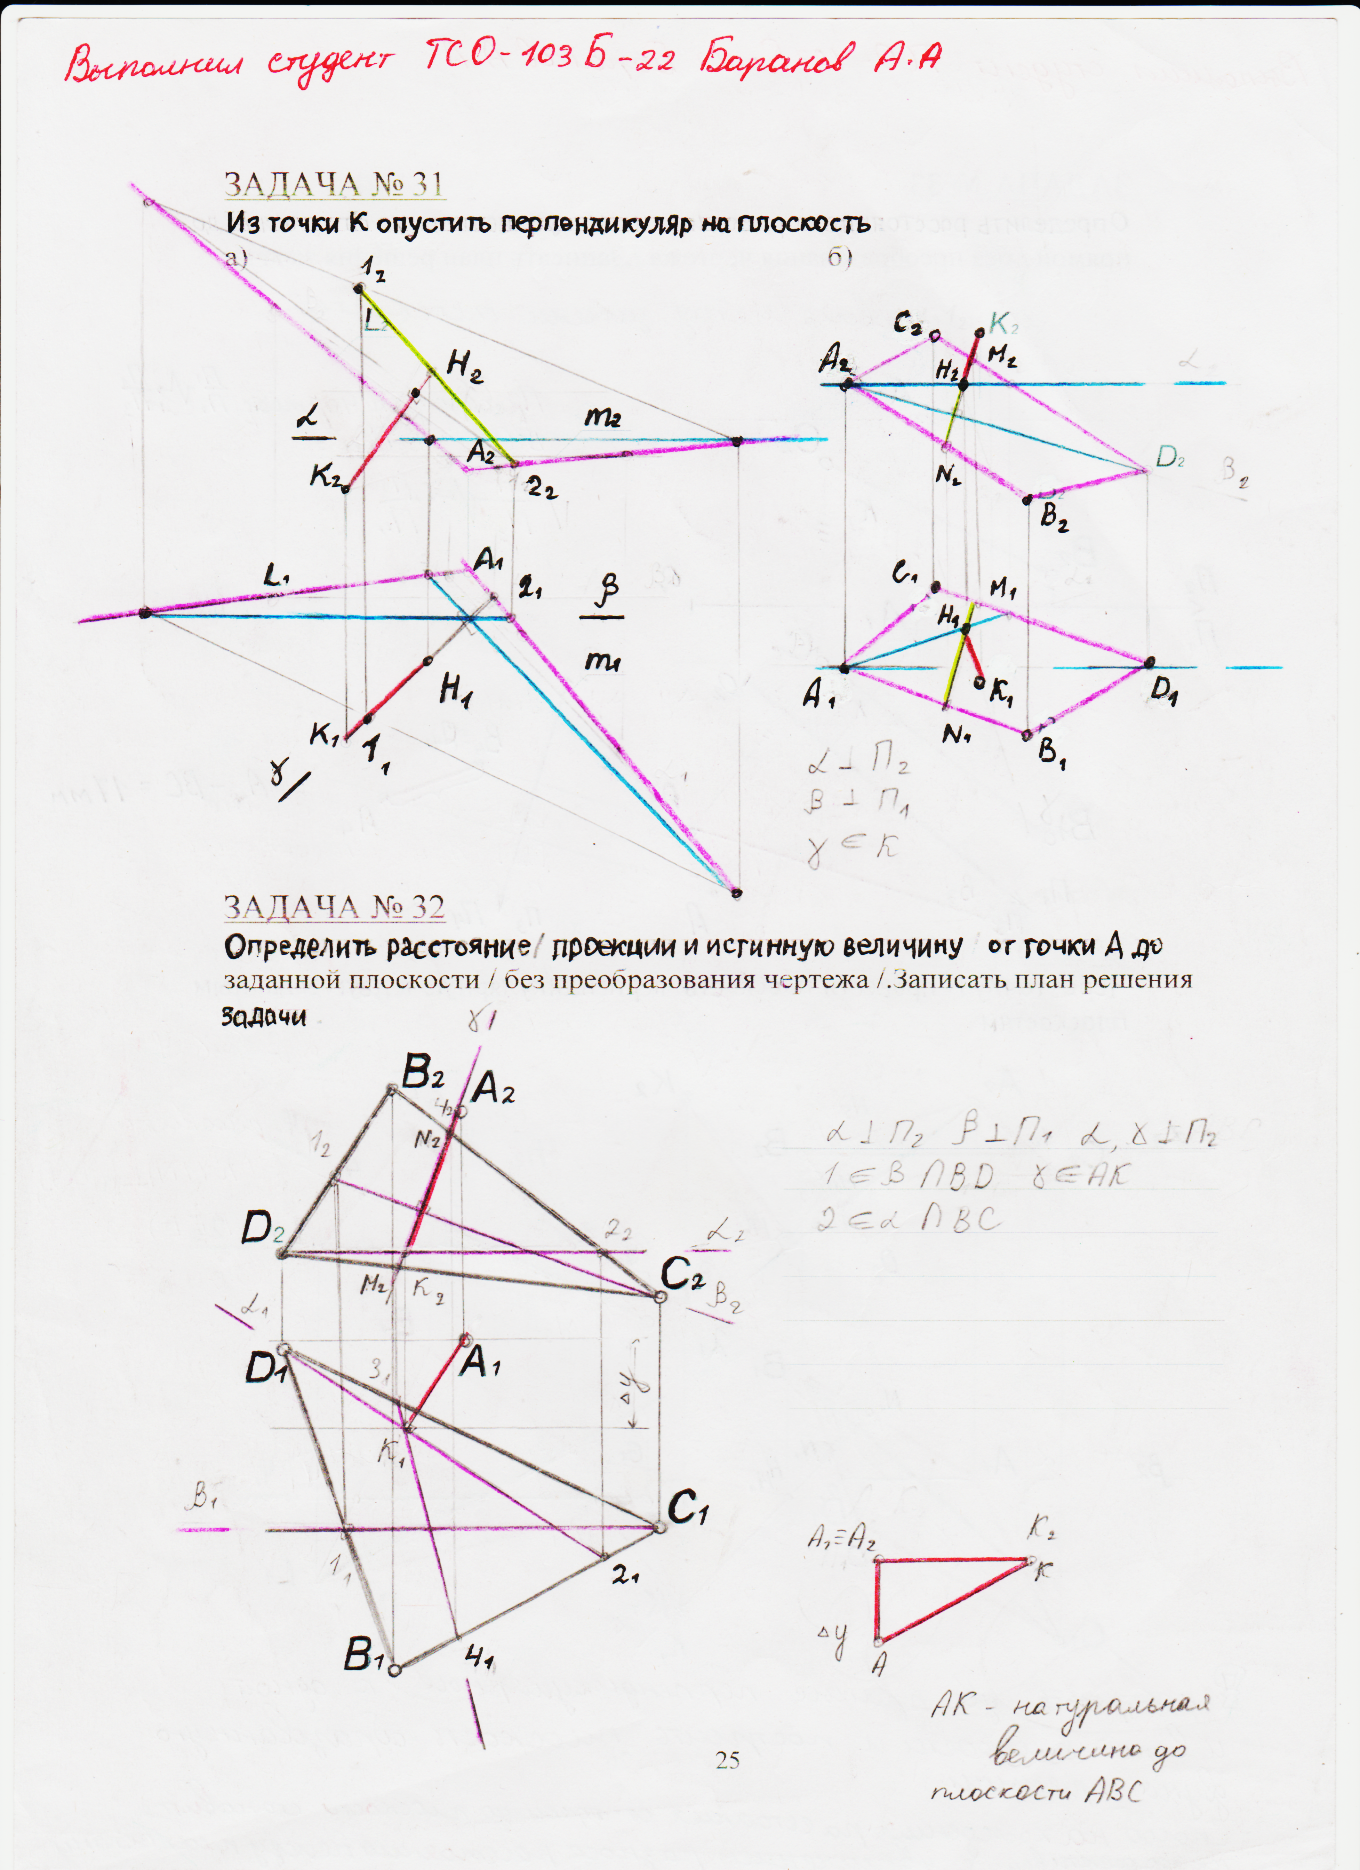 Выполнил студент ТСО-103Б-22 Баранов А.А
ЗАДАЧА № 31
Из точки К опустить перпендикуляр на плоскость
а)
б)
1₂
L₂
H₂
α
m₂
A₂
K₂
2₂
L₁
A₁
2₁
β
m₁
H₁
K₁
1₁
γ
C₂
K₂
A₂
H₂
M₂
α
N₂
D₂
B₂
β₂
C₁
M₁
H₁
A₁
K₁
D₁
N₁
B₁
α ⊥ П₂
β ⊥ П₁
γ ∈ K
ЗАДАЧА № 32
Определить расстояние/ проекции и истинную величину от точки А до
заданной плоскости / без преобразования чертежа /.Записать план решения
задачи
γ1
B₂
A₂
4₂
N₂
1₂
D₂
2₂
α₂
M₂
K₂
C₂
β₂
α₁
D₁
3₁
A₁
Δy
K₁
β₁
C₁
1₁
2₁
B₁
4₁
α ⊥ П₂ β ⊥ П₁ α, γ ⊥ П₂
1 ∈ β ∩ BD γ ∈ AK
2 ∈ α ∩ BC
A₁≡A₂
K₂
K
Δy
A
AK - натуральная
величина до
плоскости ABC
25